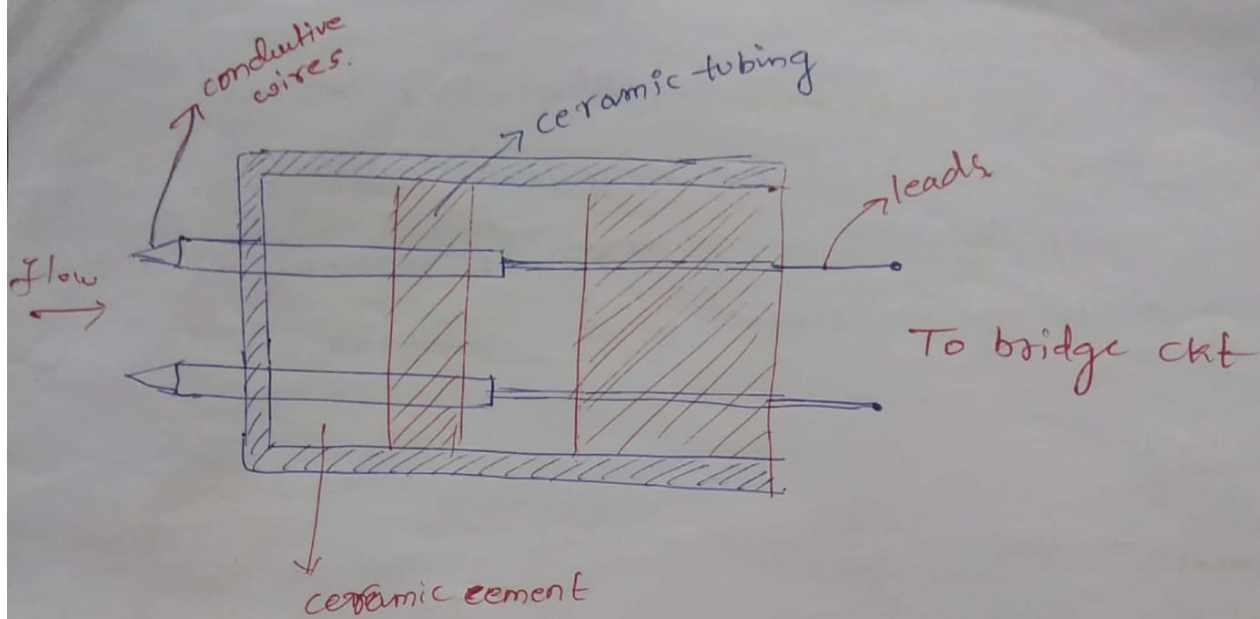 conductive
wires.
ceramic tubing
leads
flow
To bridge ckt
ceramic cement